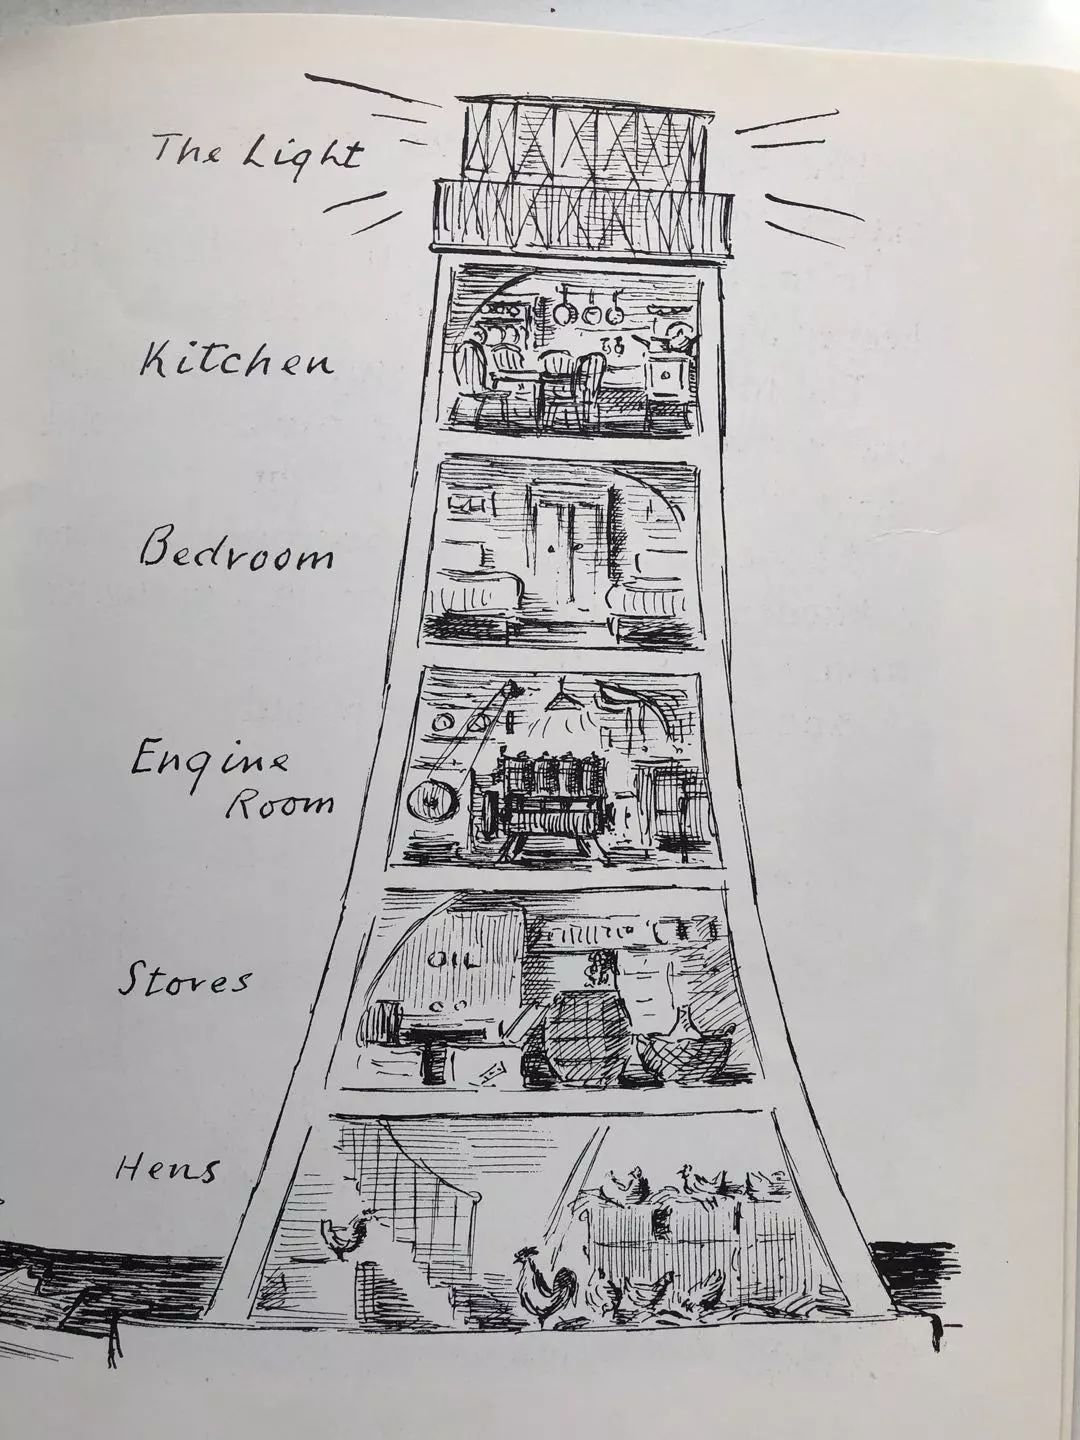 The Light
Kitchen
Bedroom
Engine
Room
Stores
OIL
Hens